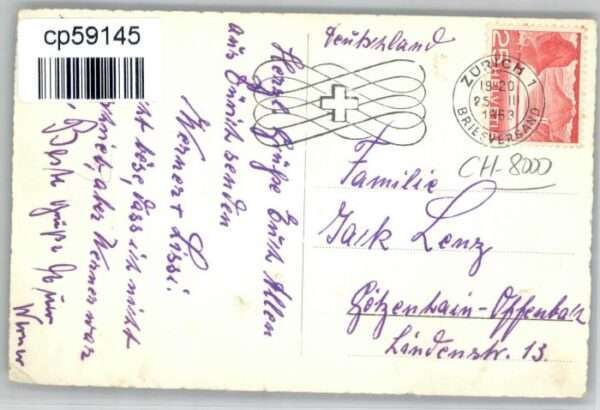 cp59145
Deutschland
25
HELVETIA
ZÜRICH 1
19-20
25. II
1953
BRIEFVERSAND
CH-8000
Familie
Jack Lenz
Götzenhain-Offenbach
Lindenstr. 13.
Herzl. Grüße Euch Allen
aus Zürich senden
Werner + Lissi.
böse, dass ich nicht
aber Werner war
Werner